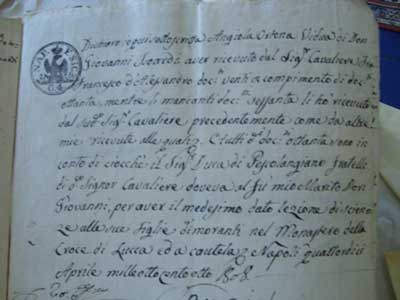 Dichiaro io qui sottoscritta Angiola Ortona Vidua di Don
Giovanni aver ricevuto dal Sig.r Cavaliere
Francesco d'Alesandro doc.ti venti a compimento di doc.ti
ottanta, mentre li mancanti doc.ti sessanta li ho ricevuti
dal sud.o Sig.r Cavaliere precedentemente come da altre
mie ricevute alle quali. E tutti d.i doc.ti ottanta sono in
conto di ciocchè il Sig.r Duca di Pescolangiano fratello
di d.o Signor Cavaliere doveva al fù mio Marito Don
Giovanni, per aver il medesimo dato lezione di scien
ze alle sue Figlie dimoranti nel Monastero della
Croce di Lucca ed a cautela Napoli quattordici
Aprile mille otto cento otto